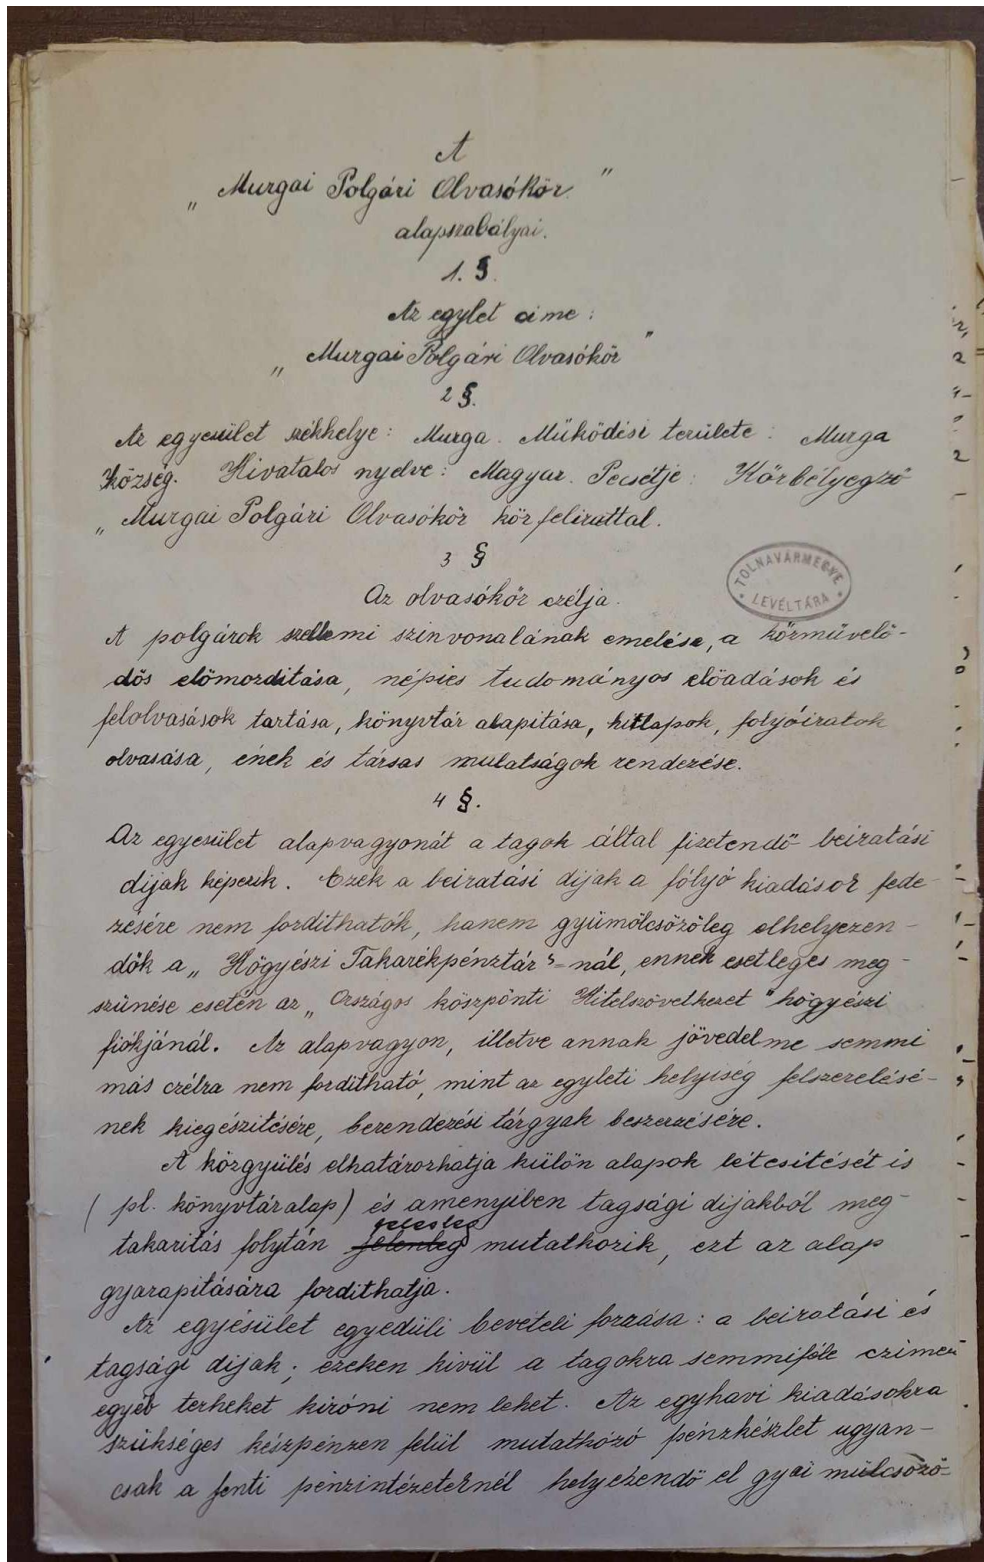 A
„Murgai Polgári Olvasókör"
alapszabályai.
1. §.
Az egylet cime:
„Murgai Polgári Olvasókör"
2 §.
Az egyesület székhelye: Murga. Működési területe: Murga
Község. Hivatalos nyelve: Magyar. Pecsétje: Körbélyegző
„Murgai Polgári Olvasókör körfelirattal.
3 §
TOLNAVÁRMEGYE LEVÉLTÁRA
Az olvasókör czélja.
A polgárok szellemi szinvonalának emelése, a közművelő-
dés előmozditása, népies tudományos előadások és
felolvasások tartása, könyvtár alapitása, hitlapok, folyóiratok
olvasása, ének és társas mulatságok rendezése.
4 §.
Az egyesület alapvagyonát a tagok által fizetendő beiratási
dijak képezik. Ezek a beiratási dijak a fólyó kiadások fede-
zésére nem fordithatók, hanem gyümölcsözőleg elhelyezen-
dők a „Högyészi Takarékpénztár"-nál, ennek esetleges meg-
szünése esetén az „Országos köszpönti Hitelszövetkezet" högyészi
fiókjánál. Az alapvagyon, illetve annak jövedelme semmi
más czélra nem fordítható, mint az egyleti helyiség felszerelésé-
nek kiegészitésére, berendezési tárgyak beszerzésére.
A közgyülés elhatározhatja külön alapok létesitését is
(pl. könyvtáralap) és amenyiben tagsági dijakból meg-
felesleg
takaritás folytán jelenleg mutatkozik, ezt az alap
gyarapitására fordithatja.
Az egyésület egyedüli bevételi forrása: a beiratási és
tagsági dijak; ezeken kivül a tagokra semmiféle czimen
egyéb terheket kiróni nem lehet. Az egyhavi kiadásokra
szükséges készpénzen felül mutatkozó pénzkészlet ugyan-
csak a fenti pénzintézeteknél helyezendő el gyümülcsöző-